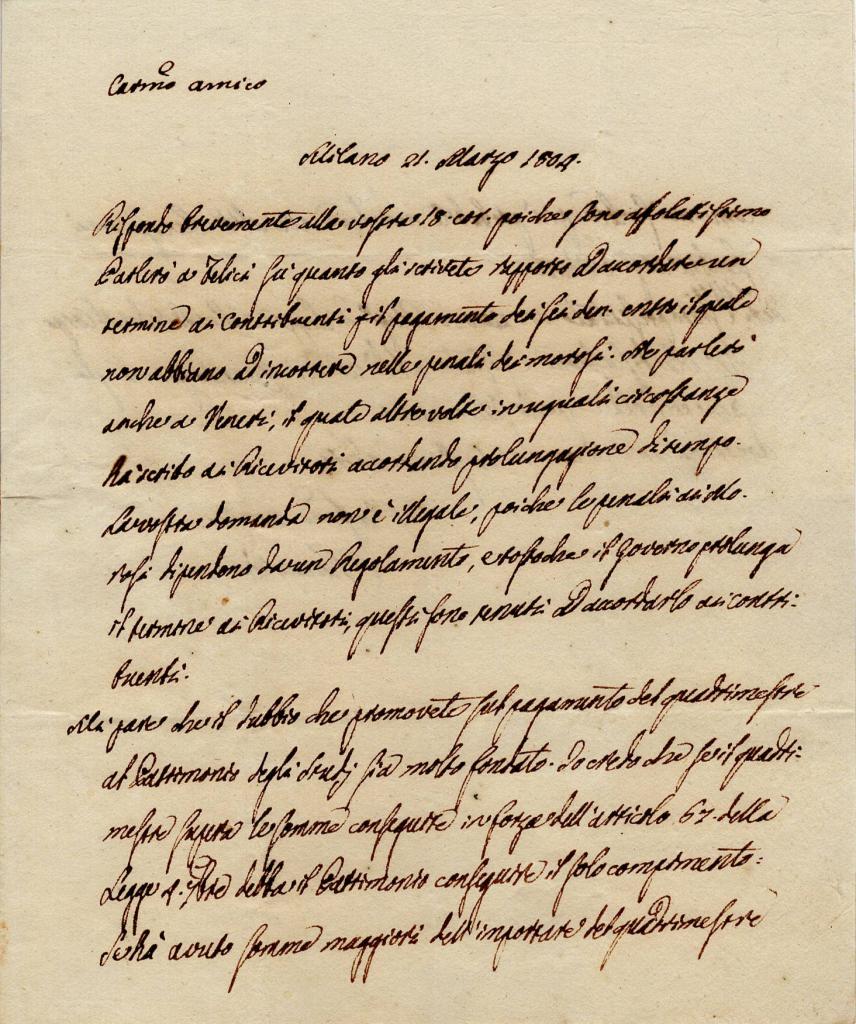 Carmo amico
Milano 21. Marzo 1804.
Rispondo brevemente alla vostra 18. cor. poichè sono affolatissimo
Parlerò a Felici su quanto gli scrivete rapporto ad accordare un
termine ai Contribuenti p il pagamento dei sei den. entro il quale
non abbiano ad incorrere nelle penali dei morosi. Ne parlerò
anche a Veneri, il quale altre volte in uguali circostanze
ha scritto ai Ricevitori accordando prolungazione di tempo.
La vostra domanda non è illegale, poichè le penali ai Mo-
rosi dipendono da un Regolamento, e tostochè il Governo prolunga
il termine ai Ricevitori, questi sono tenuti ad accordarlo ai contri:
buenti.
Mi pare che il dubbio che promovete sul pagamento del quadrimestre
al Patrimonio degli studj sia molto fondato. Io credo che se il quadri:
mestre supera le somme conseguite in forza dell'articolo 67. della
Legge 4. debba il Patrimonio conseguire il solo compimento:
Se ha avuto somme maggiori dell'importare del quadrimestre